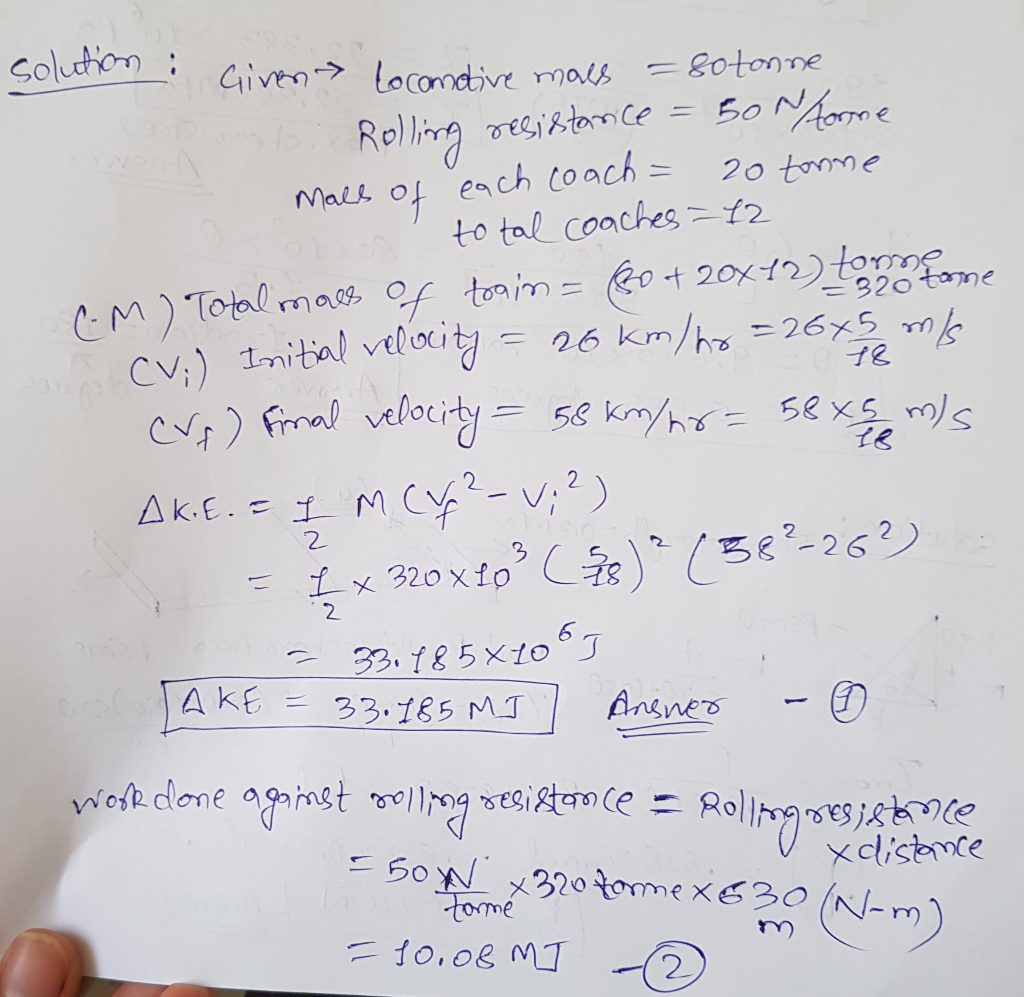 Solution : Given → locomotive mass = 80 tonne
Rolling resistance = 50 N/tonne
Mass of each coach = 20 tonne
total coaches = 12
(M) Total mass of train = (80 + 20×12) tonne = 320 tonne
(Vi) Initial velocity = 26 km/hr = 26×5/18 m/s
(Vf) Final velocity = 58 km/hr = 58×5/18 m/s
ΔK.E. = 1/2 M (Vf² - Vi²)
= 1/2 × 320×10³ (5/18)² (58²-26²)
= 33.185×10⁶ J
ΔKE = 33.185 MJ Answer - ①
Work done against rolling resistance = Rolling resistance
× distance
= 50 N/tonne × 320 tonne × 630 m (N-m)
= 10.08 MJ - ②